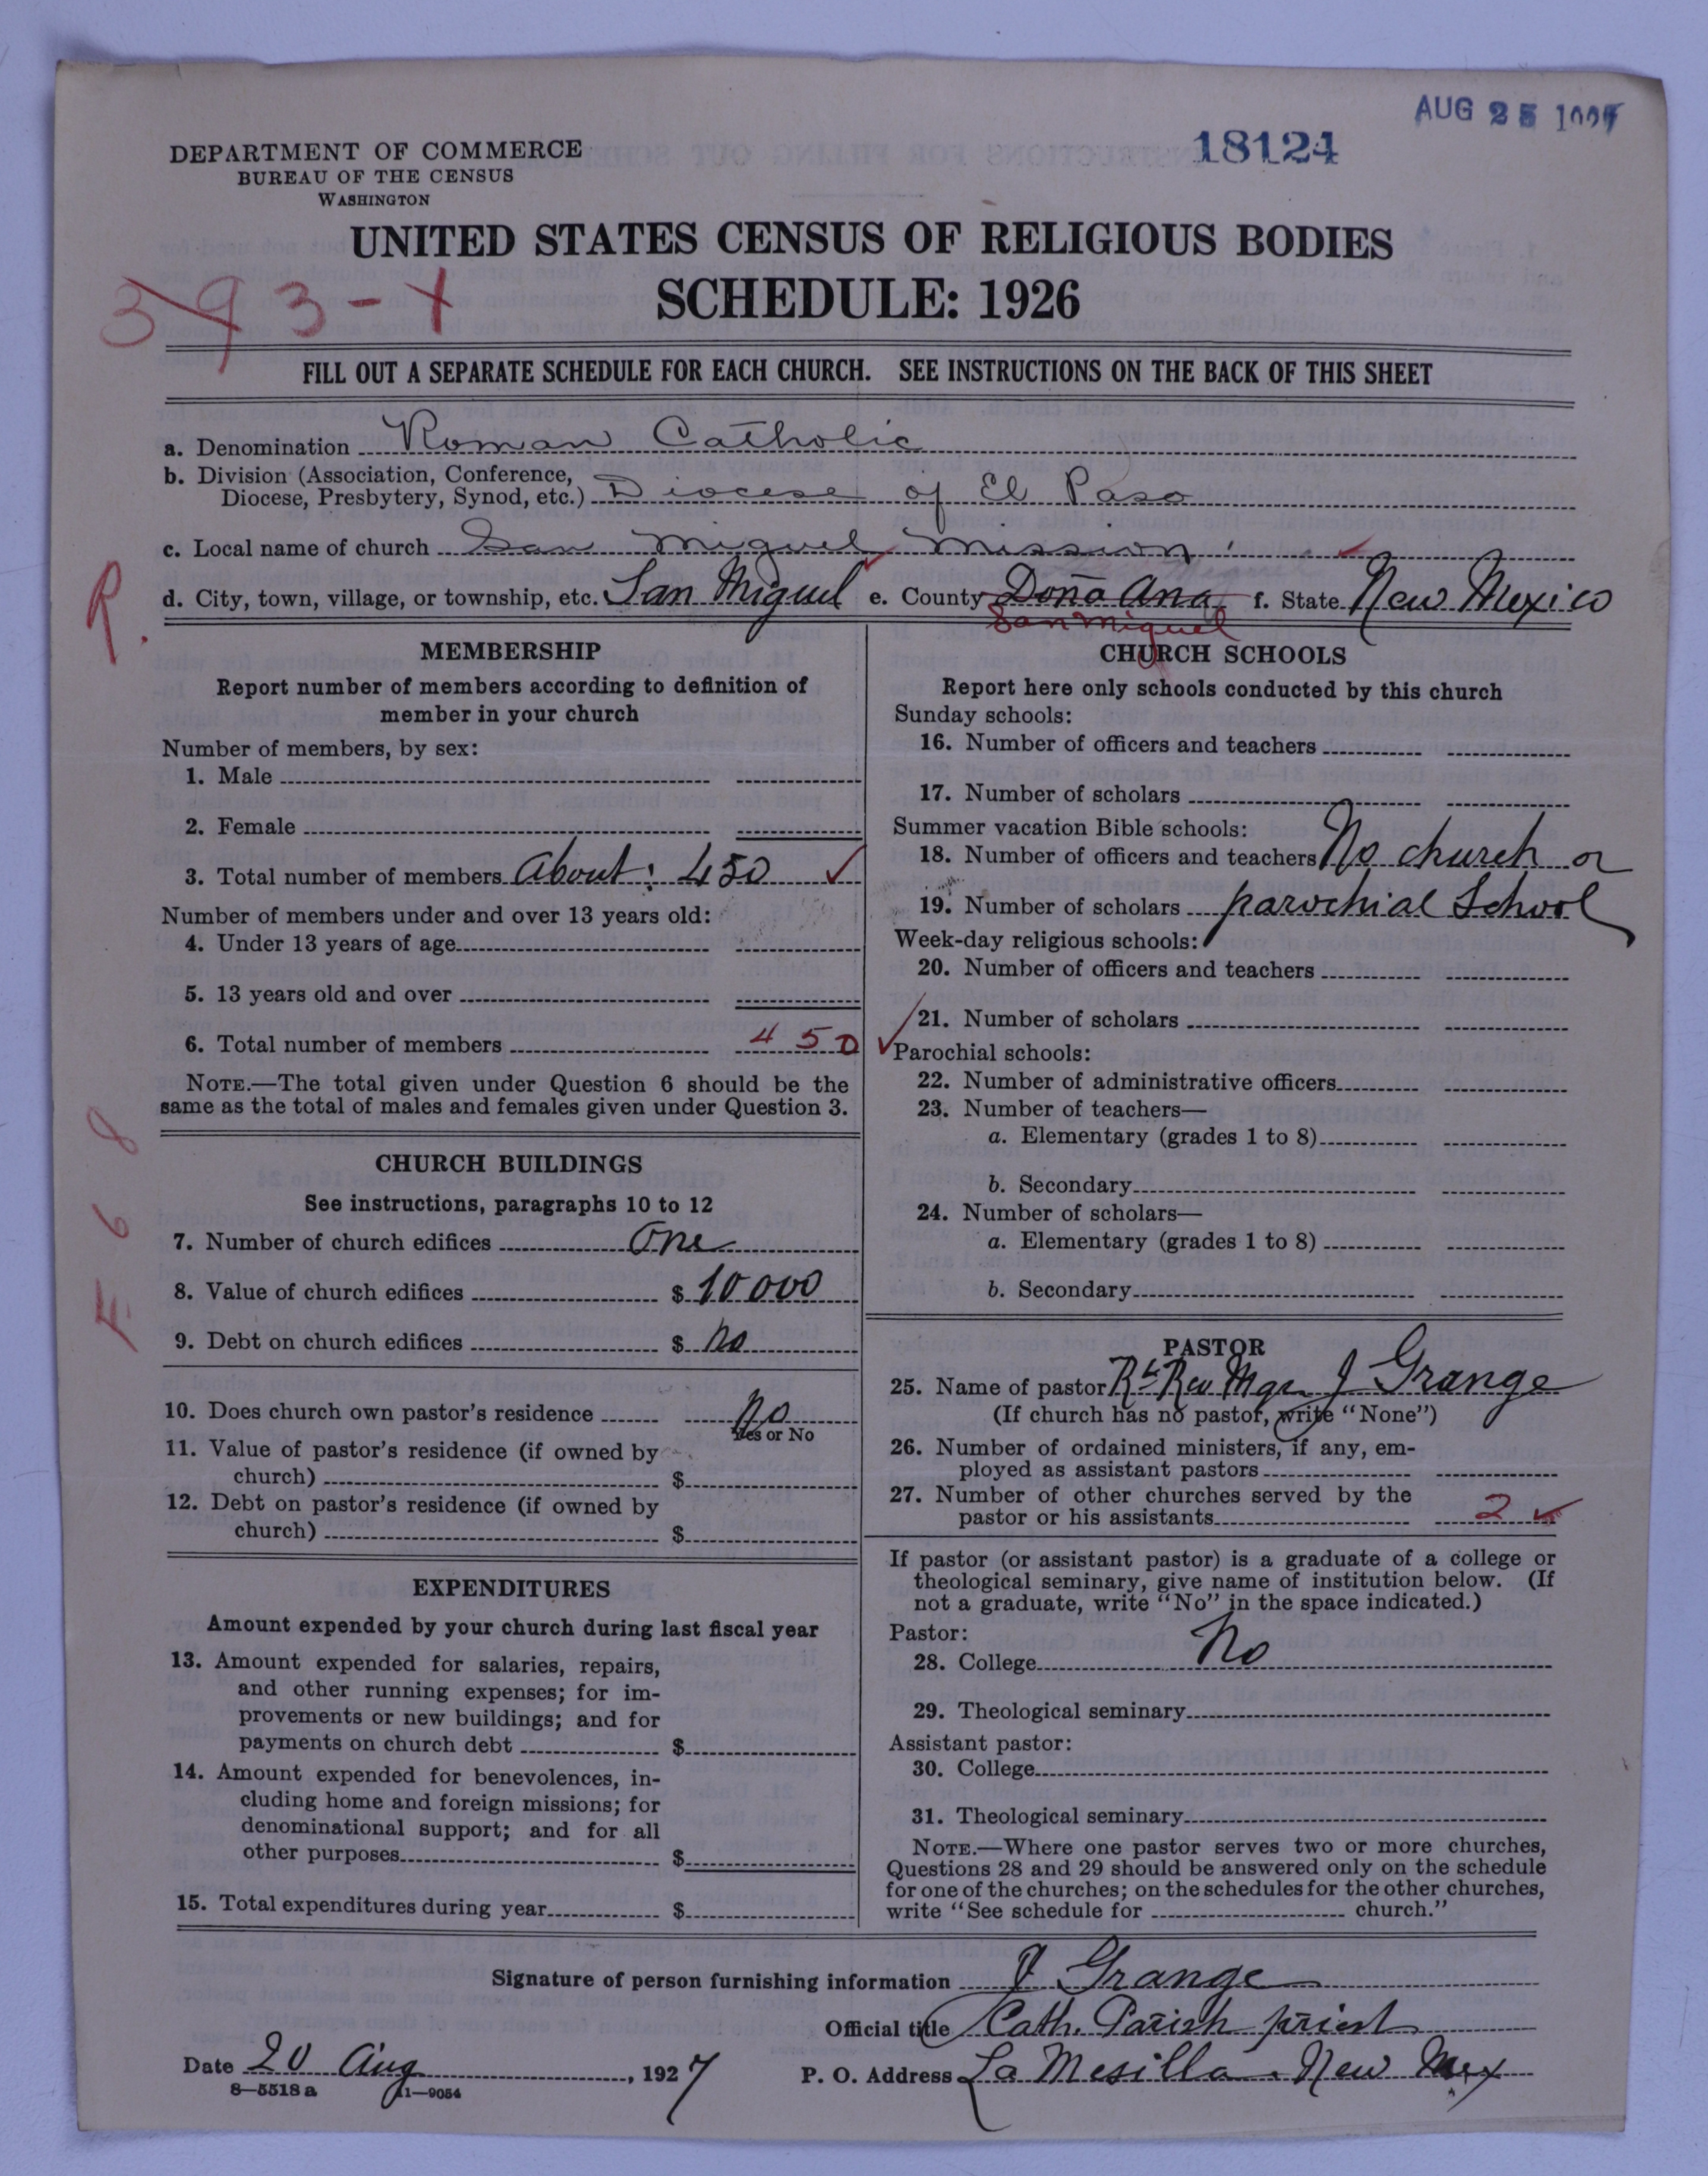 AUG 25
18124
DEPARTMENT OF COMMERCE
BUREAU OF THE CENSUS
WASHINGTON
UNITED STATES CENSUS OF RELIGIOUS BODIES
SCHEDULE: 1926
393-1
FILL OUT A SEPARATE SCHEDULE FOR EACH CHURCH. SEE INSTRUCTIONS ON THE BACK OF THIS SHEET
a. Denomination Roman Catholic
b. Division (Association, Conference,
Diocese, Presbytery, Synod, etc.) Diocese of El Paso
c. Local name of church San Miguel Mission
R.
d. City, town, village, or township, etc. San Miguel e. County Doña Ana f. State New Mexico
San Miguel
MEMBERSHIP
Report number of members according to definition of
member in your church
Number of members, by sex:
1. Male
2. Female
3. Total number of members About: 450 ✓
Number of members under and over 13 years old:
4. Under 13 years of age
5. 13 years old and over
6. Total number of members 450
NOTE.—The total given under Question 6 should be the
same as the total of males and females given under Question 3.
CHURCH BUILDINGS
See instructions, paragraphs 10 to 12
7. Number of church edifices One
8. Value of church edifices $ 10000
9. Debt on church edifices $ no
10. Does church own pastor's residence No
Yes or No
11. Value of pastor's residence (if owned by
church) $
12. Debt on pastor's residence (if owned by
church) $
EXPENDITURES
Amount expended by your church during last fiscal year
13. Amount expended for salaries, repairs,
and other running expenses; for im-
provements or new buildings; and for
payments on church debt $
14. Amount expended for benevolences, in-
cluding home and foreign missions; for
denominational support; and for all
other purposes $
15. Total expenditures during year $
CHURCH SCHOOLS
Report here only schools conducted by this church
Sunday schools:
16. Number of officers and teachers
17. Number of scholars
Summer vacation Bible schools:
18. Number of officers and teachers No church or
19. Number of scholars parochial School
Week-day religious schools:
20. Number of officers and teachers
21. Number of scholars
✓ Parochial schools:
22. Number of administrative officers
23. Number of teachers—
a. Elementary (grades 1 to 8)
b. Secondary
24. Number of scholars—
a. Elementary (grades 1 to 8)
b. Secondary
PASTOR
25. Name of pastor Rt Rev Mgr J Grange
(If church has no pastor, write "None")
26. Number of ordained ministers, if any, em-
ployed as assistant pastors
27. Number of other churches served by the
pastor or his assistants 2 ✓
If pastor (or assistant pastor) is a graduate of a college or
theological seminary, give name of institution below. (If
not a graduate, write "No" in the space indicated.)
Pastor:
28. College No
29. Theological seminary
Assistant pastor:
30. College
31. Theological seminary
NOTE.—Where one pastor serves two or more churches,
Questions 28 and 29 should be answered only on the schedule
for one of the churches; on the schedules for the other churches,
write "See schedule for church."
Signature of person furnishing information J Grange
Official title Cath. Parish priest
Date 20 Aug, 1927 P. O. Address La Mesilla. New Mex
8—5518 a 11—9054